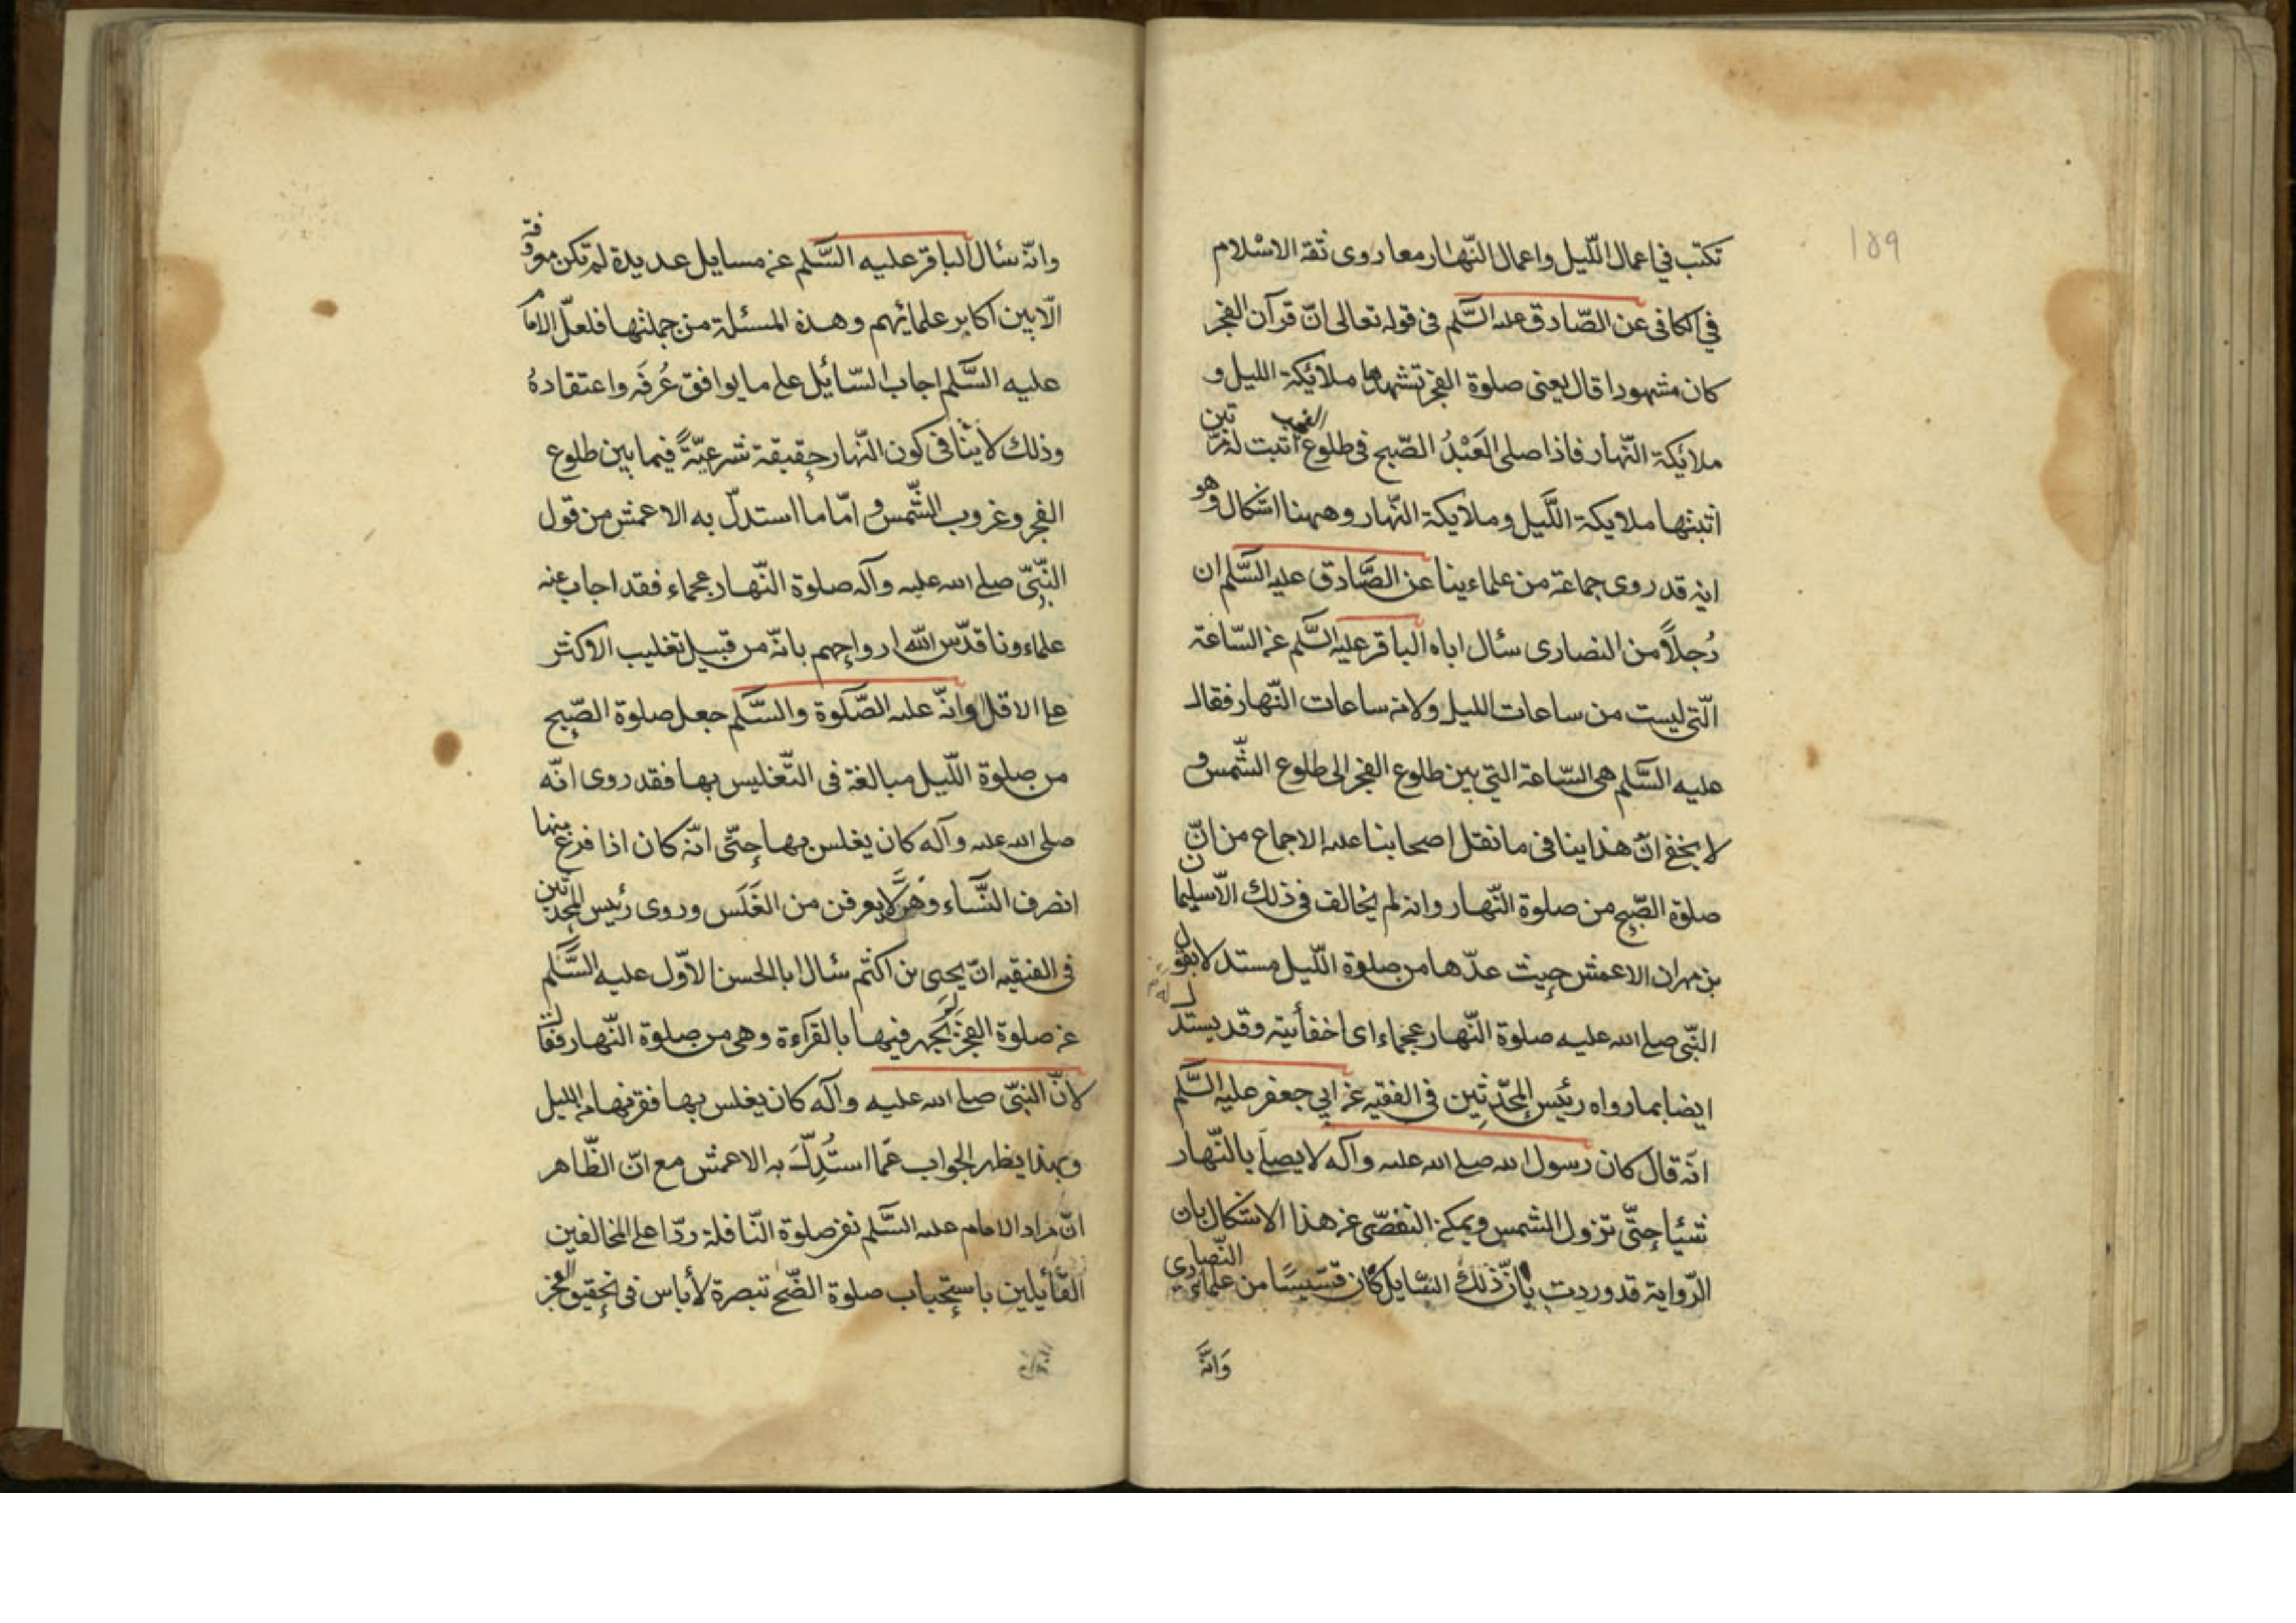 ١٥٩
تكتب في اعمال اللّيل واعمال النّهار معا روى ثقة الاسْلام
في الكافى عن الصّادق عليه السَّلم فى قوله تعالى انّ قرآن الفجر
كان مشهودا قال يعنى صلوة الفجر تشهدها ملائكة الليل و
ملايكة النّهار فاذا صلى العَبْدُ الصّبح فى طلوع الفجر اثبت له مرّتين
اثبتها ملايكة اللَّيل وملايكة النّهار وههنا اشكال وهو
انه قد روى جماعة من علماءينا عن الصَّادق عليه السَّلم ان
رُجلاً من النصارى سئال اباه الباقر عليه السَّلم عن السّاعة
الّتي ليست من ساعات الليل ولا من ساعات النّهار فقال
عليه السَّلم هى السّاعة التي بين طلوع الفجر الى طلوع الشّمس و
لا يخفى انّ هذا ينافى ما نقل اصحابنا عليه الاجماع من انّ
صلوة الصّبح من صلوة النّهار وانه لم يخالف فى ذلك الّا سليمان
بن مهران الاعمش حيث عدّها من صلوة اللّيل مستدلا بقول
النّبى صلى الله عليه صلوة النّهار عجماء اى اخفأتية وقد يستدل
ايضا بما رواه رئيس المحدّثين فى الفقيه عن ابي جعفر عليه السَّلم
انّه قال كان رسول الله صلى الله عليه وآله لا يصلى بالنّهار
شيئا حتّى تزول الشمس ويمكن التفصّى عن هذا الاشكال بان
الرّواية قد وردت بانّ ذلك السّايل كان قسّيسًا من علماء النّصارى
وَانّه
وانّه سئال الباقر عليه السَّلم عن مسايل عديدة لم تكن معروفة
الّا بين اكابر علمائهم وهذه المسئلة من جملتها فلعلّ الامام
عليه السَّلم اجاب السّائل على ما يوافق عُرفَه واعتقادهُ
وذلك لا ينافى كون النّهار حقيقة شرعيّةً فيما بين طلوع
الفجر وغروب الشّمس و امّا ما استدلّ به الاعمش من قول
النّبيّ صلى الله عليه وآله صلوة النّهار عجماء فقد اجاب عنه
علماءونا قدّس الله ارواحهم بانّه من قبيل تغليب الاكثر
على الاقل وانّه عليه الصّلوة والسَّلم جعل صلوة الصّبح
من صلوة اللّيل مبالغة فى التّغليس بها فقد روى انّه
صلى الله عليه وآله كان يغلس بها حتّى انّه كان اذا فرغ منها
انصرف النّساء وهنّ لا يعرفن من الغَلَس وروى رئيس المحدّثين
فى الفقيه انّ يحيى بن اكثم سئال ابا الحسن الاوّل عليه السَّلم
عن صلوة الفجر لم يجهر فيها بالقراءة وهى من صلوة النّهار فقال
لانّ النبّى صلى الله عليه وآله كان يغلس بها فقربها من الليل
وبهذا يظهر الجواب عمّا استُدِلّ به الاعمش مع انّ الظّاهر
انّ مراد الامام عليه السَّلم نفى صلوة النّافلة ردّا على المخالفين
القّائلين باستحباب صلوة الضّحى تبصرة لأباس فى تحقيق الفجر